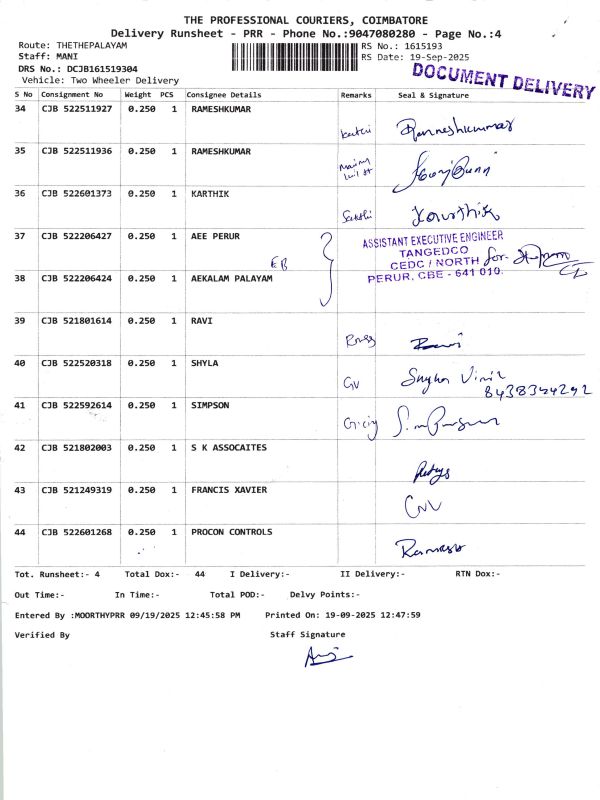 THE PROFESSIONAL COURIERS, COIMBATORE
Delivery Runsheet - PRR - Phone No.:9047080280 - Page No.:4
Route: THETHEPALAYAM
RS No.: 1615193
Staff: MANI
RS Date: 19-Sep-2025
DRS No.: DCJB161519304
DOCUMENT DELIVERY
Vehicle: Two Wheeler Delivery
S No Consignment No Weight PCS Consignee Details Remarks Seal & Signature
34 CJB 522511927 0.250 1 RAMESHKUMAR
Rameshkumar
35 CJB 522511936 0.250 1 RAMESHKUMAR
36 CJB 522601373 0.250 1 KARTHIK
Karthik
37 CJB 522206427 0.250 1 AEE PERUR
EB
ASSISTANT EXECUTIVE ENGINEER
TANGEDCO
CEDC / NORTH for
PERUR, CBE - 641 010.
38 CJB 522206424 0.250 1 AEKALAM PALAYAM
39 CJB 521801614 0.250 1 RAVI
Ravi
40 CJB 522520318 0.250 1 SHYLA
GV
8438344292
41 CJB 522592614 0.250 1 SIMPSON
42 CJB 521802003 0.250 1 S K ASSOCAITES
43 CJB 521249319 0.250 1 FRANCIS XAVIER
44 CJB 522601268 0.250 1 PROCON CONTROLS
Tot. Runsheet:- 4 Total Dox:- 44 I Delivery:- II Delivery:- RTN Dox:-
Out Time:- In Time:- Total POD:- Delvy Points:-
Entered By :MOORTHYPRR 09/19/2025 12:45:58 PM Printed On: 19-09-2025 12:47:59
Verified By Staff Signature